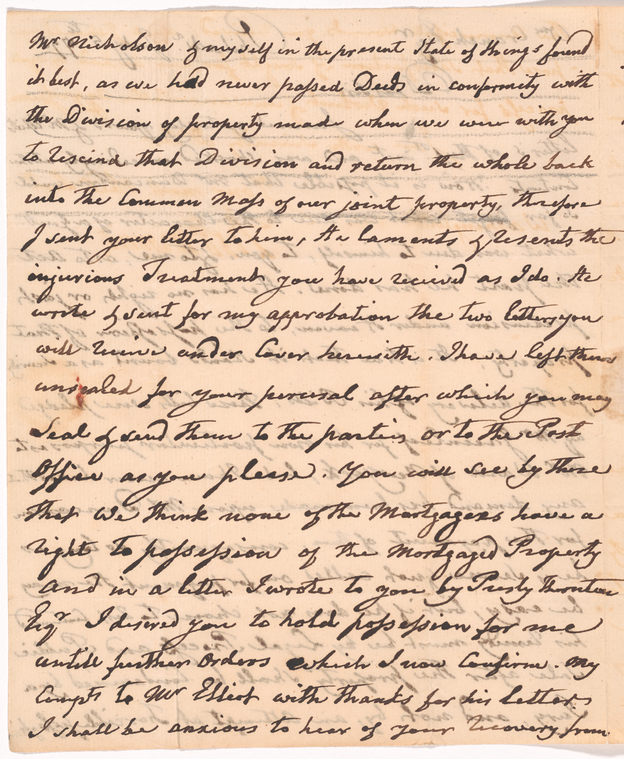 Mr Nicholson & myself in the present State of things found
it best, as we had never passed Deeds in conformity with
the Division of property made when we were with you
to rescind that Division and return the whole back
into the Common Mass of our joint property, therefore
I sent your letter to him, He laments & resents the
injurious Treatment you have recieved as I do. He
wrote & sent for my approbation the two letters you
will receive under Cover herewith. I have left them
unsealed for your perusal after which you may
Seal & send them to the parties or to the Post
Office as you please. You will see by these
that we think none of the Mortgagees have a
right to possession of the Mortgaged Property
and in a letter I wrote to you by Presly Thornton
Esqr I desired you to hold possession for me
untill further orders which I now Confirm. My
Compts to Mr Elliot with thanks for his letters
I shall be anxious to hear of your recovery from